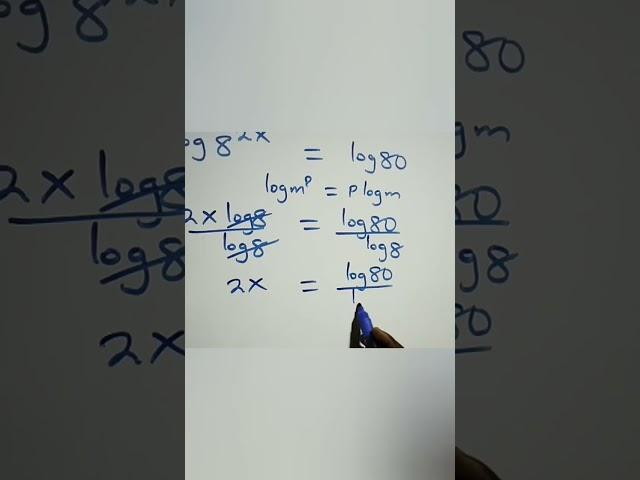 og 8^2x = log 80
log m^p = p log m
2x log8 / log8 = log80 / log8
2x = log80 /